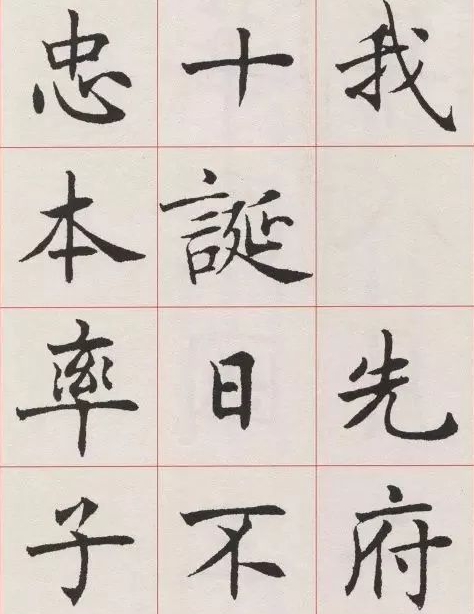 我先府
十誕日不
忠本率子